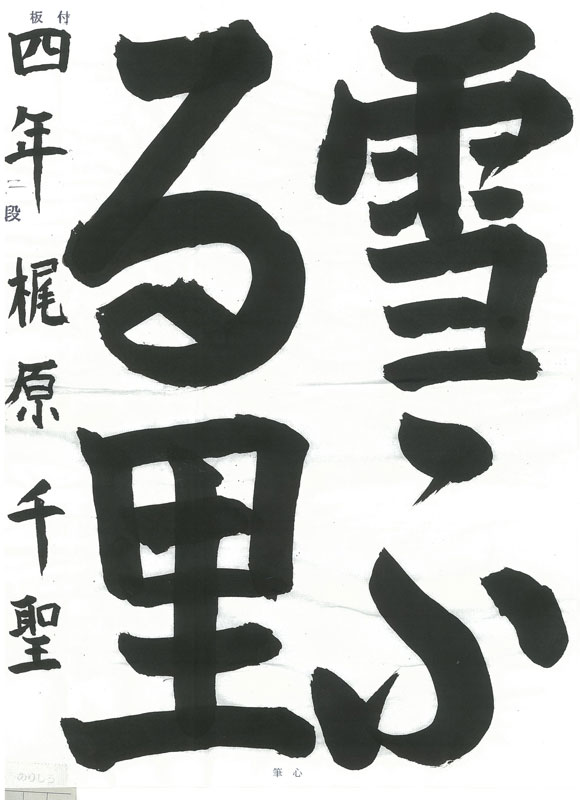 雪ふ
る里
四年 梶原千聖
板付
二段
心筆
のりしろ